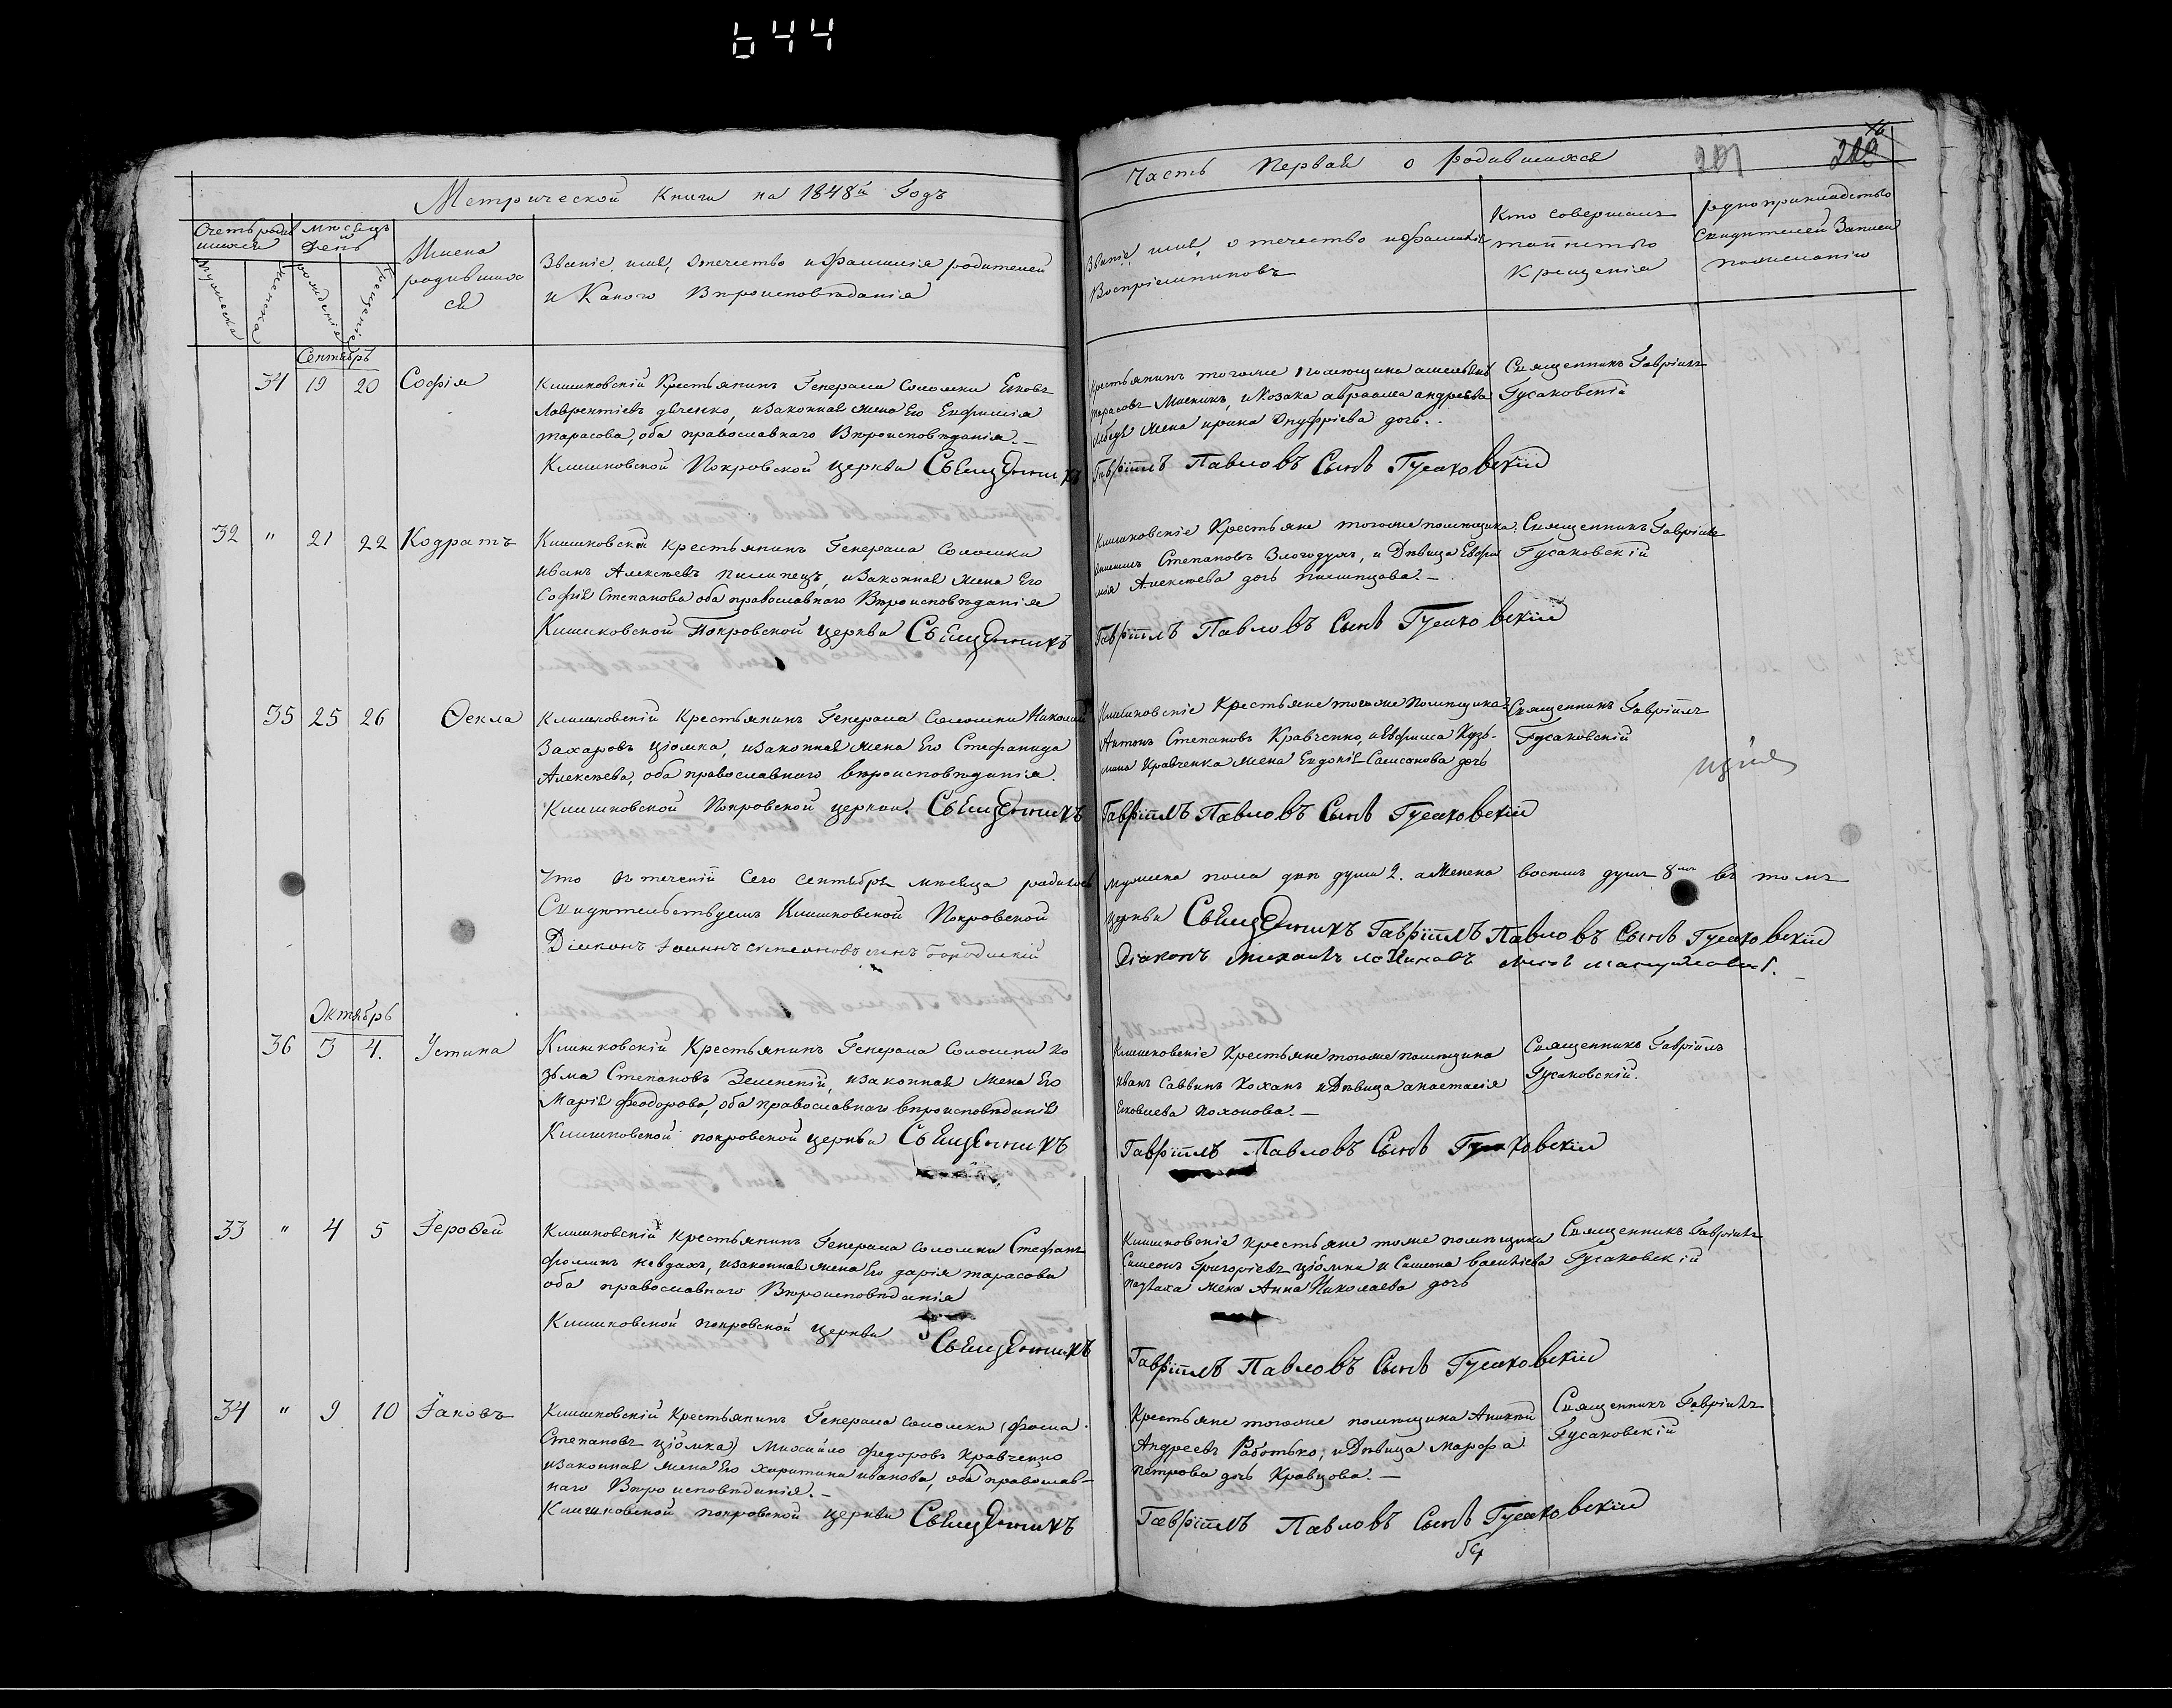 644
Метрической Книги на 1848й Годъ
Счетъ родив
шихся
Мѣсяцъ
и
День
Имена
родивших
ся
Званіе, имя, Отечество и фамилія родителей
и Какого Вѣроисповѣданія
мужеска
женска
рожденія
крещенія
Сентябрь
34 19 20 Софія
Клишковскій Крестьянинъ Генерала Соломки Яковъ
Лаврентіевъ дяченко, и законная жена Его Евфимія
тарасова, оба православнаго Вѣроисповѣданія.
Клишковской Покровской церкви Священникъ
32 " 21 22 Кодратъ
Клишковскій крестьянинъ Генерала Соломки
иванъ Алексѣевъ пилипецъ, и законная жена Его
Софія Степанова оба православнаго Вѣроисповѣданія
Клишковской Покровской церкви Священникъ
35 25 26 Ѳекла
Клишковскій Крестьянинъ Генерала Соломки Николай
Захаровъ цюмка, и законная жена Его Стефанида
Алексѣева, оба православнаго вѣроисповѣданія.
Клишковской Покровской церкви. Священникъ
Что въ теченіи Сего Сентября мѣсяца родилось
Свидѣтельствуемъ Клишковской Покровской
Діаконъ Іоаннъ сынъ
Октябрь
36 3 4. Устина
Клишковскій Крестьянинъ Генерала Соломки Ко
зьма Степановъ Зеленскій, и законная жена Его
Марія Феодорова, оба православнаго вѣроисповѣданія
Клишковской покровской церкви Священникъ
33 " 4 5 Іероѳей
Клишковскій крестьянинъ Генерала соломки Стефанъ
фоминъ невдахъ, и законная жена Его дарія тарасова
оба православнаго Вѣроисповѣданія
Клишковской покровской церкви
Священникъ
34 " 9 10 Іаковъ
Клишковскій Крестьянинъ Генерала соломки (фома
Степановъ цюмка) Михайло федоровъ кравченко
и законная жена Его харитина иванова, оба православ-
наго Вѣроисповѣданія.
Клишковской покровской церкви Священникъ
Часть Первая о родившихся 201
Званіе, имя, отечество и фамилія
Воспріемниковъ
Кто совершалъ
таинство
Крещенія
рукоприкладство
Свидѣтелей Записи
по желанію
Крестьянинъ того же помѣщика
тарасовъ и Козака авраама андреева
жена ирина Онуфріева дочь.
Священникъ Гавріилъ
Гусаковскій
Гавріилъ Павловъ Сынъ Гусаковскій
Клишковскіе Крестьяне того же помѣщика
Степановъ Злогодухъ, и Дѣвица Евфи
мія Алексѣева дочь пилипцова.
Священникъ Гавріилъ
Гусаковскій
Гавріилъ Павловъ Сынъ Гусаковскій
Клишковскіе Крестьяне того же Помѣщика
Антонъ Степановъ Кравченко, и Евфима Кузь-
мина Кравченка жена Евдокія Самсонова дочь
Священникъ Гавріилъ
Гусаковскій
Гавріилъ Павловъ Сынъ Гусаковскій
мужеска пола двѣ души 2. а женска восемь душъ 8 въ томъ
церкви Священникъ Гавріилъ Павловъ Сынъ Гусаковскій
Діаконъ
Клишковскіе Крестьяне того же помѣщика
иванъ Саввинъ Коханъ и Дѣвица анастасія
Яковлева Коханова.
Священникъ Гавріилъ
Гусаковскій.
Гавріилъ Павловъ Сынъ Гусаковскій
Клишковскіе крестьяне того же помѣщика
Симеонъ Григоріевъ цюмка и Симеона василіева
невдаха жена Анна Николаева дочь
Священникъ Гавріилъ
Гусаковскій
Гавріилъ Павловъ Сынъ Гусаковскій
Крестьяне того же помѣщика
Андреевъ Работько, и Дѣвица марфа
петрова дочь Кравцова.
Священникъ Гавріилъ
Гусаковскій
Гавріилъ Павловъ Сынъ Гусаковскій